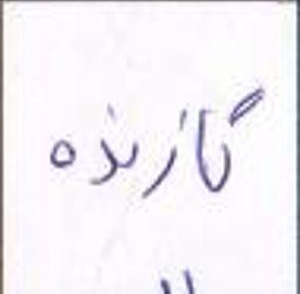 گازنده